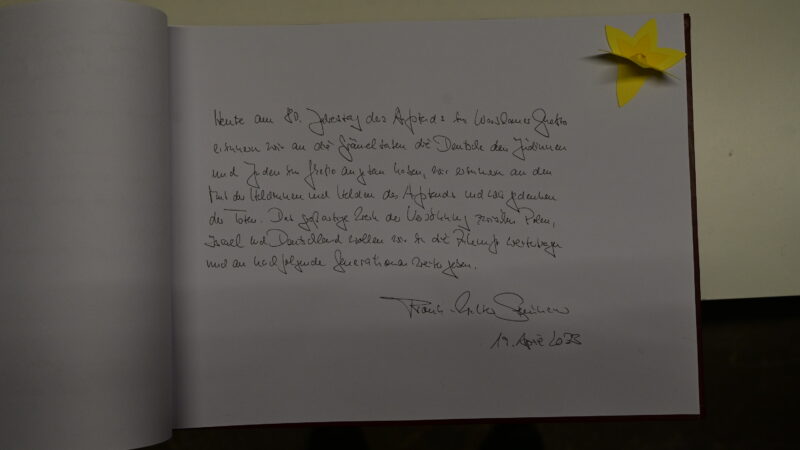 Heute am 80. Jahrestag des Aufstands im Warschauer Ghetto
erinnern wir an die Gräueltaten die Deutsche den Jüdinnen
und Juden im Ghetto angetan haben, wir erinnern an den
Mut der Heldinnen und Helden des Aufstands und wir gedenken
der Toten. Das Werk der Versöhnung zwischen Polen,
Israel und Deutschland wollen wir in die Zukunft weitertragen
und an nachfolgende Generationen weitergeben.
Frank-Walter Steinmeier
19. April 2023